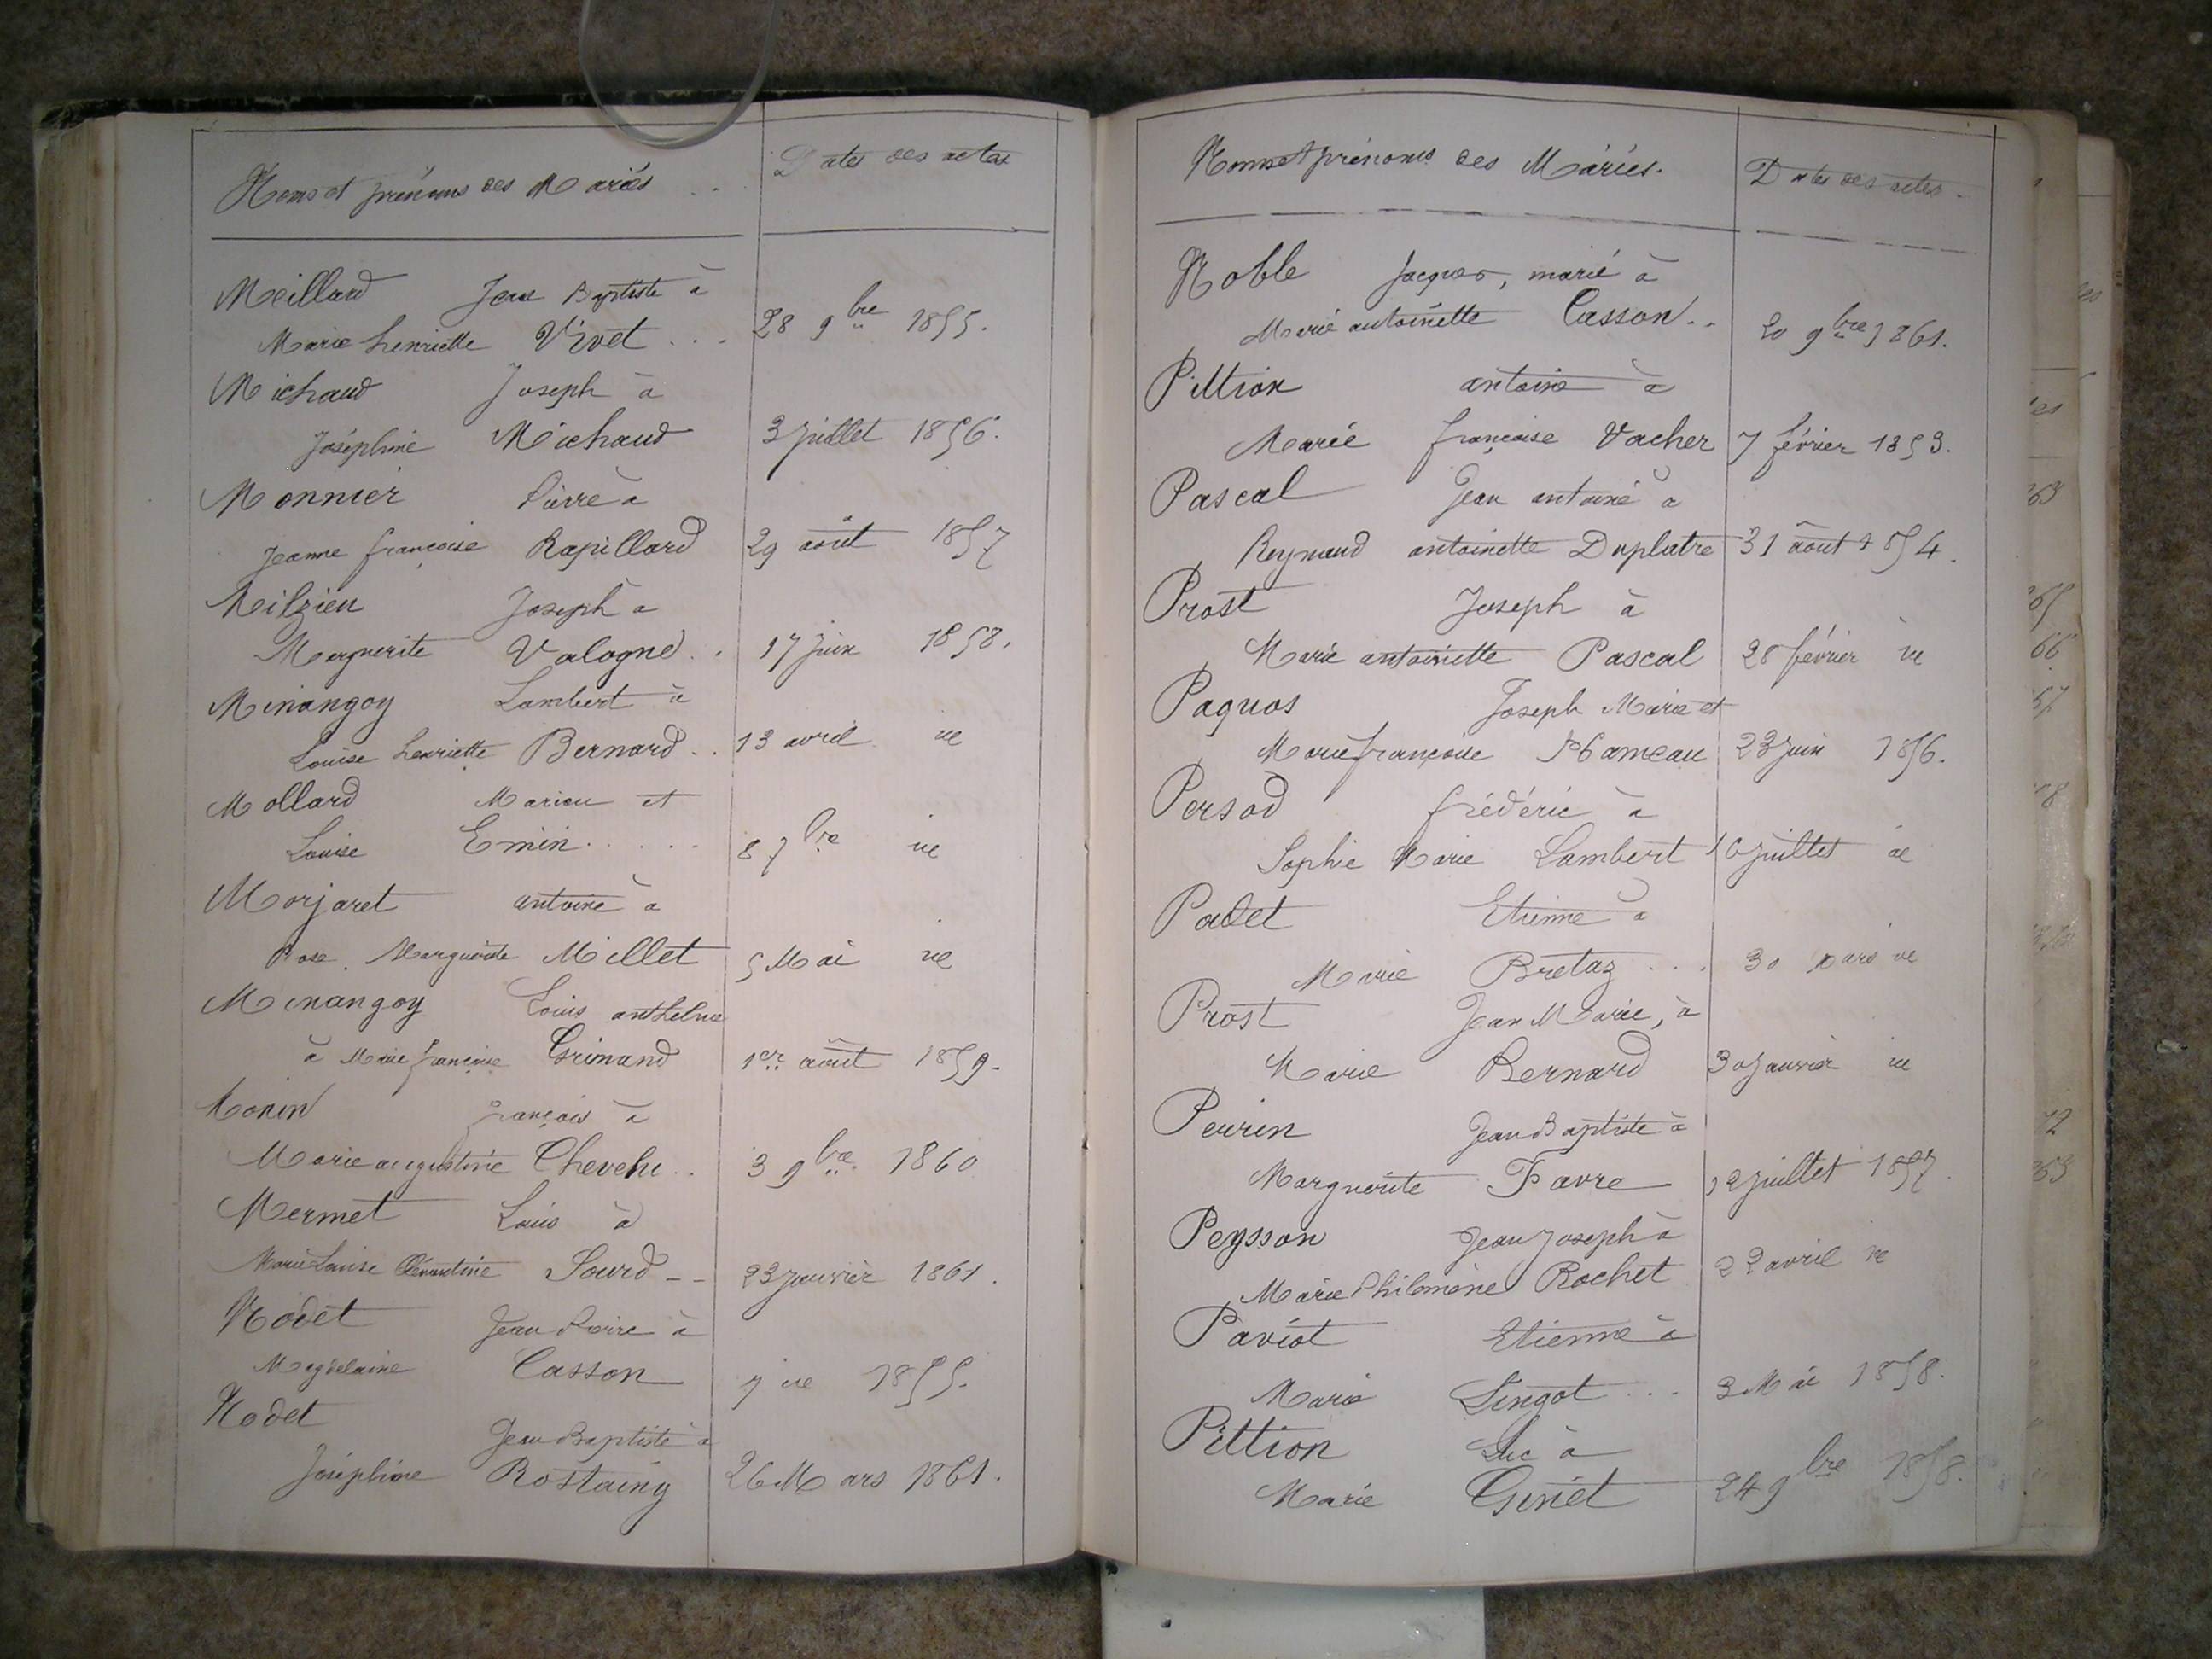 Noms et prénoms des Mariés .. Dates des actes
Meillard Jean Baptiste à
Marie henriette Vivet ... 28 9bre 1855.
Michaud Joseph à
Joséphine Michaud 3 juillet 1856.
Monnier Pierre à
Jeanne françoise Rapillard 29 août 1857
Milzieu Joseph à
Marguerite Valogne .. 17 juin 1858.
Minangoy Lambert à
Louise henriette Bernard .. 13 avril
Mollard et
Louise Emin ..... 8 7bre
Morjaret antoine à
Rose Marguerite Millet 5 Mai
Minangoy Louis anthelme
à Marie françoise Grimand 1er août 1859.
Monin françois à
Marie augustine Chevelu .. 3 9bre 1860
Mermet Louis à
Marie Louise Sourd -- 23 janvier 1861.
Nodet Jean Pierre à
Magdelaine Casson 7 1855.
Nodet
Jean Baptiste à
Joséphine Rostaing 26 Mars 1861.
Noms et prénoms des Mariés. Dates des actes.
Noble Jacques, marié à
Marie antoinette Casson .. 20 9bre 1861.
Pittion antoine à
Marie françoise Vacher 7 février 1853.
Pascal Jean antoine à
Reymond antoinette Duplatre 31 août 1854.
Prost Joseph à
Marie antoinette Pascal 28 février
Joseph Marie et
Marie françoise Hameau 23 juin 1856.
Persod frédéric à
Sophie Marie Lambert 10 juillet
Padet Etienne à
Marie Bretaz ... 30 Mars
Prost Jean Marie, à
Marie Bernard 30 janvier
Perrin Jean Baptiste à
Marguerite Favre 12 juillet 1857
Peysson Jean Joseph à
Marie Philomène Rochet 22 avril
Paviot Etienne à
Marie Lingot ... 3 Mai 1858.
Pittion Luc à
Marie Ginet 24 9bre 1858.